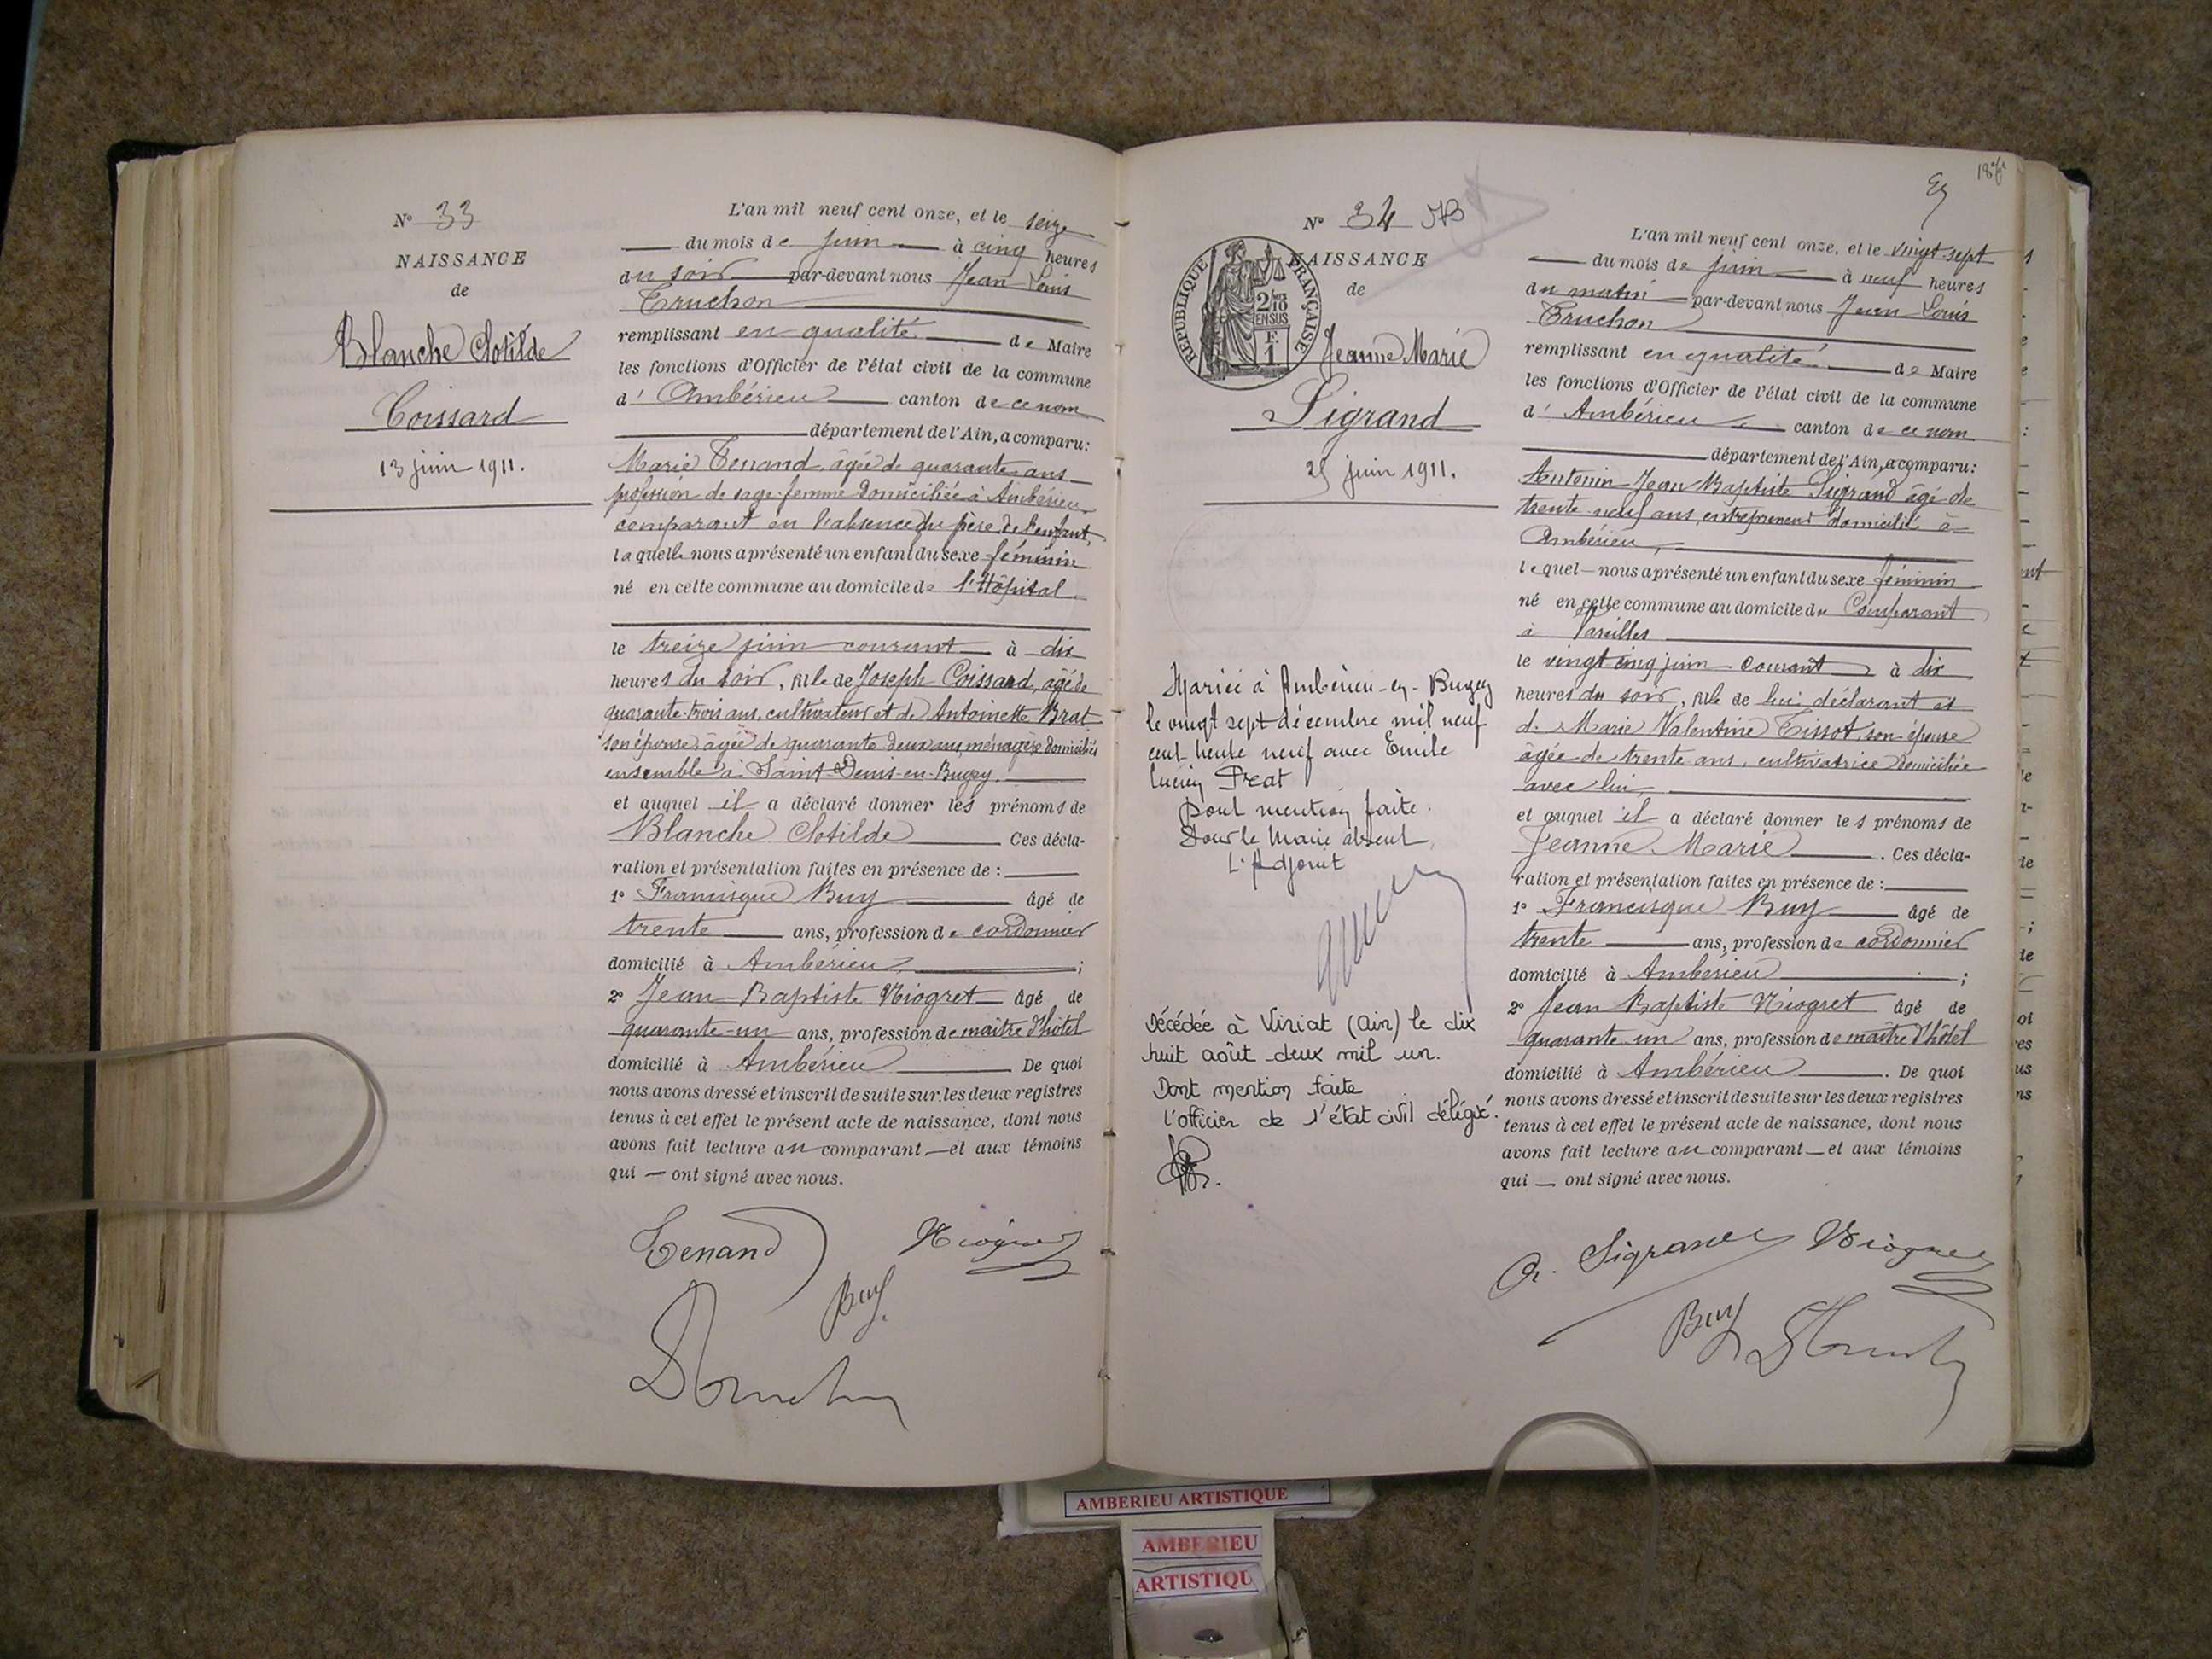 N° 33
NAISSANCE
de
Blanche Clotilde
Coissard
13 juin 1911.
L'an mil neuf cent onze, et le seize
du mois de juin à cinq heures
du soir par-devant nous Jean Louis
Truchon
remplissant en qualité de Maire
les fonctions d'Officier de l'état civil de la commune
d' Ambérieu canton de ce nom
département de l'Ain, a comparu:
Marie Tenand, âgée de quarante ans
profession de sage-femme domiciliée à Ambérieu
comparant en l'absence du père de l'enfant,
laquelle nous a présenté un enfant du sexe féminin
né en cette commune au domicile de l'Hôpital
le treize juin courant à dix
heures du soir, fille de Joseph Coissard, âgé de
quarante-trois ans, cultivateur et de Antoinette Brat
son épouse, âgée de quarante deux ans, ménagère domiciliés
ensemble à Saint-Denis-en-Bugey.
et auquel il a déclaré donner les prénoms de
Blanche Clotilde Ces décla-
ration et présentation faites en présence de :
1° Francisque Buy âgé de
trente ans, profession de cordonnier
domicilié à Ambérieu ;
2° Jean Baptiste Niogret âgé de
quarante-un ans, profession de maître d'hôtel
domicilié à Ambérieu De quoi
nous avons dressé et inscrit de suite sur les deux registres
tenus à cet effet le présent acte de naissance, dont nous
avons fait lecture au comparant et aux témoins
qui ont signé avec nous.
Tenand Niogret
Buy
Truchon
N° 34
NAISSANCE
de
RÉPUBLIQUE FRANÇAISE
2/10
EN SUS
F.
1
Jeanne Marie
Sigrand
25 juin 1911.
Mariée à Ambérieu-en-Bugey
le vingt sept décembre mil neuf
cent trente neuf avec Emile
Lucien Preat
Dont mention faite.
Pour le Maire absent
L'Adjoint
Décédée à Viriat (Ain) le dix
huit août deux mil un.
Dont mention faite
l'officier de l'état civil délégué.
L'an mil neuf cent onze, et le vingt-sept
du mois de juin à neuf heures
du matin par-devant nous Jean Louis
Truchon
remplissant en qualité de Maire
les fonctions d'Officier de l'état civil de la commune
d' Ambérieu canton de ce nom
département de l'Ain, a comparu:
Antonin Jean Baptiste Sigrand âgé de
trente-neuf ans, entrepreneur domicilié à
Ambérieu,
lequel nous a présenté un enfant du sexe féminin
né en cette commune au domicile du Comparant
à Vareilles
le vingt cinq juin courant à dix
heures du soir, fille de lui déclarant et
de Marie Valentine Tissot, son épouse
âgée de trente ans, cultivatrice domiciliée
avec lui
et auquel il a déclaré donner les prénoms de
Jeanne Marie . Ces décla-
ration et présentation faites en présence de :
1° Francisque Buy âgé de
trente ans, profession de cordonnier
domicilié à Ambérieu ;
2° Jean Baptiste Niogret âgé de
quarante un ans, profession de maître d'hôtel
domicilié à Ambérieu . De quoi
nous avons dressé et inscrit de suite sur les deux registres
tenus à cet effet le présent acte de naissance, dont nous
avons fait lecture au comparant et aux témoins
qui ont signé avec nous.
A. Sigrand Niogret
Buy Truchon
AMBERIEU ARTISTIQUE
AMBERIEU
ARTISTIQU